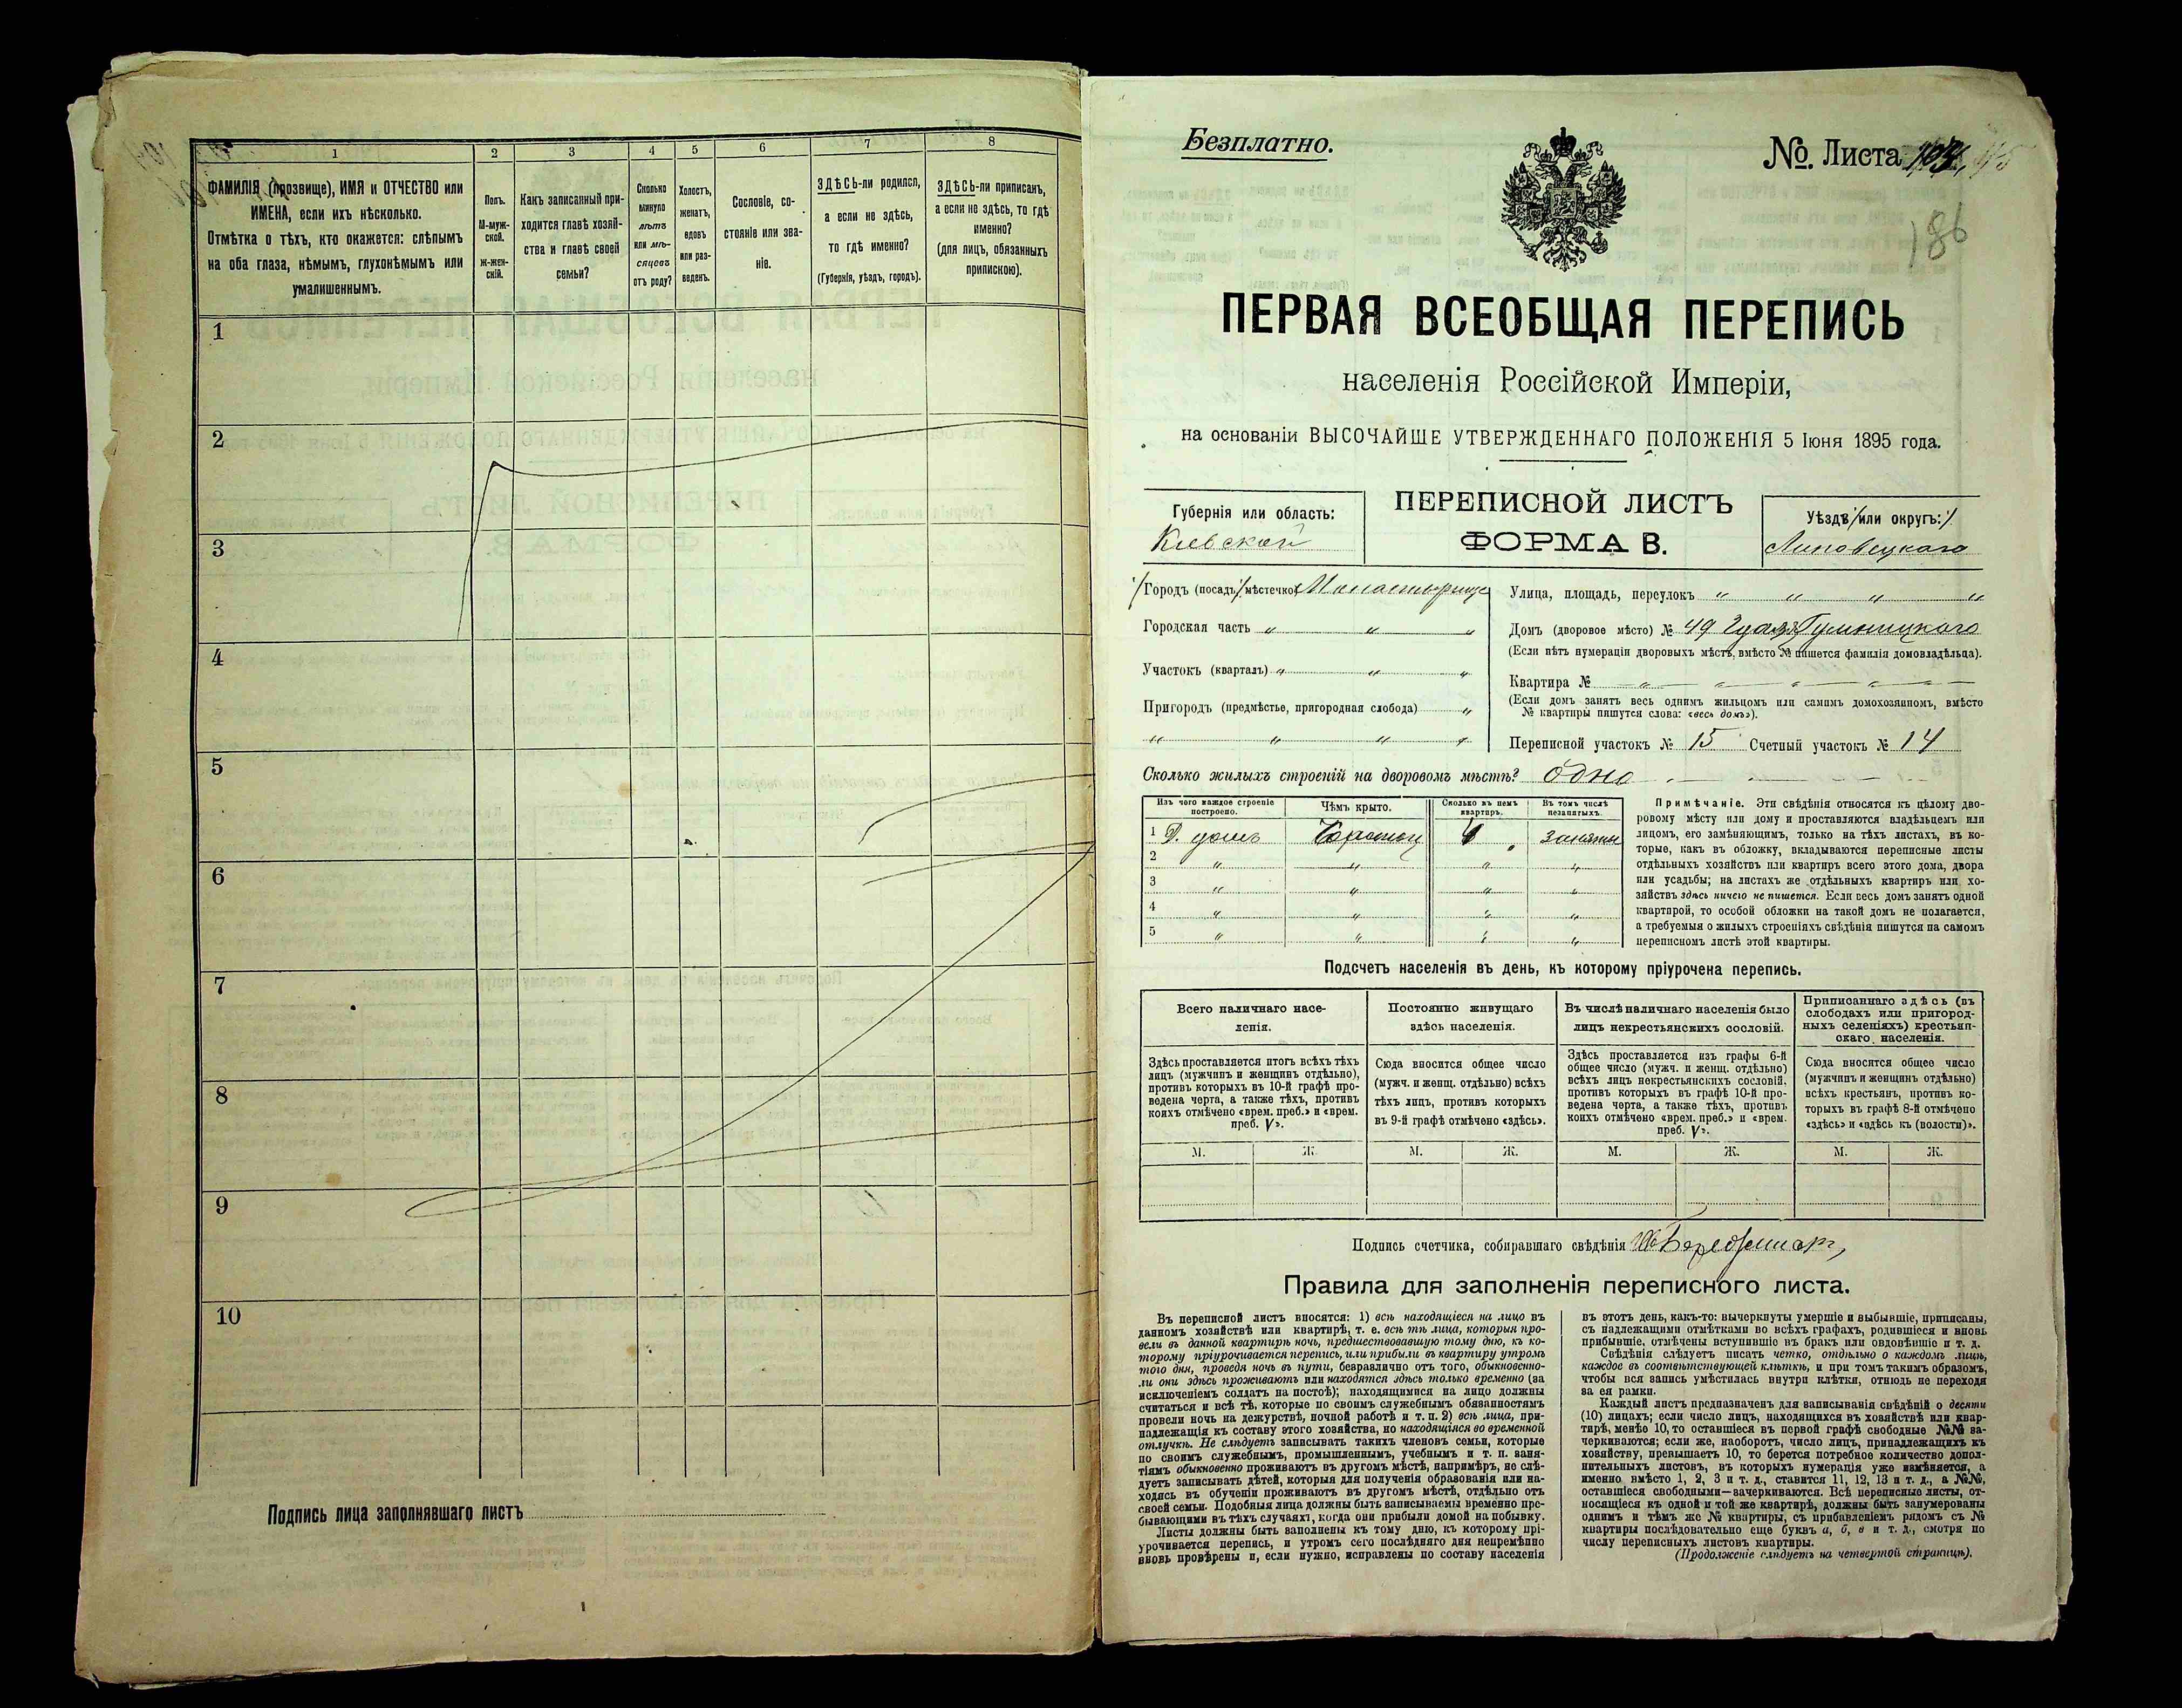 1
2
3
4
5
6
7
8
ФАМИЛІЯ (прозвище), ИМЯ и ОТЧЕСТВО или
ИМЕНА, если ихъ нѣсколько.
Отмѣтка о тѣхъ, кто окажется: слѣпымъ
на оба глаза, нѣмымъ, глухонѣмымъ или
умалишеннымъ.
Полъ.
М-муж-
ской.
Ж-жен-
скій.
Какъ записанный при-
ходится главѣ хозяй-
ства и главѣ своей
семьи?
Сколько
минуло
лѣтъ
или мѣ-
сяцевъ
отъ роду?
Холостъ,
женатъ,
вдовъ
или раз-
веденъ.
Сословіе, со-
стояніе или зва-
ніе.
ЗДѢСЬ-ли родился,
а если не здѣсь,
то гдѣ именно?
(Губернія, уѣздъ, городъ).
ЗДѢСЬ-ли приписанъ,
а если не здѣсь, то гдѣ
именно?
(для лицъ, обязанныхъ
припискою).
1
2
3
4
5
6
7
8
9
10
Подпись лица заполнявшаго листъ
Безплатно.
№ Листа
186
ПЕРВАЯ ВСЕОБЩАЯ ПЕРЕПИСЬ
населенія Россійской Имперіи,
на основаніи ВЫСОЧАЙШЕ УТВЕРЖДЕННАГО ПОЛОЖЕНІЯ 5 Іюня 1895 года.
Губернія или область:
Кіевской
ПЕРЕПИСНОЙ ЛИСТЪ
ФОРМА В.
Уѣздъ или округъ:
Липовецкаго
Городъ (посадъ, мѣстечко) Монастырище
Городская часть " " "
Участокъ (кварталъ) " " "
Пригородъ (предмѣстье, пригородная слобода) "
" " " "
Улица, площадь, переулокъ " " " "
Домъ (дворовое мѣсто) № 49
(Если нѣтъ нумераціи дворовыхъ мѣстъ, вмѣсто № пишется фамилія домовладѣльца).
Квартира № " " " " "
(Если домъ занятъ весь однимъ жильцомъ или самимъ домохозяиномъ, вмѣсто
№ квартиры пишутся слова: «весь домъ»).
Переписной участокъ № 15 Счетный участокъ № 14
Сколько жилыхъ строеній на дворовомъ мѣстѣ? одно
Изъ чего каждое строеніе
построено.
Чѣмъ крыто.
Сколько въ немъ
квартиръ.
Въ томъ числѣ
незанятыхъ.
1 Д.
2 " " " "
3 " " " "
4 " " " "
5 " " " "
Примѣчаніе. Эти свѣдѣнія относятся къ цѣлому дво-
ровому мѣсту или дому и проставляются владѣльцемъ или
лицомъ, его замѣняющимъ, только на тѣхъ листахъ, въ ко-
торые, какъ въ обложку, вкладываются переписные листы
отдѣльныхъ хозяйствъ или квартиръ всего этого дома, двора
или усадьбы; на листахъ же отдѣльныхъ квартиръ или хо-
зяйствъ здѣсь ничего не пишется. Если весь домъ занятъ одной
квартирой, то особой обложки на такой домъ не полагается,
а требуемыя о жилыхъ строеніяхъ свѣдѣнія пишутся на самомъ
переписномъ листѣ этой квартиры.
Подсчетъ населенія въ день, къ которому пріурочена перепись.
Всего наличнаго насе-
ленія.
Постоянно живущаго
здѣсь населенія.
Въ числѣ наличнаго населенія было
лицъ некрестьянскихъ сословій.
Приписаннаго здѣсь (въ
слободахъ или пригород-
ныхъ селеніяхъ) крестьян-
скаго населенія.
Здѣсь проставляется итогъ всѣхъ тѣхъ
лицъ (мужчинъ и женщинъ отдѣльно),
противъ которыхъ въ 10-й графѣ про-
ведена черта, а также тѣхъ, противъ
коихъ отмѣчено «врем. преб.» и «врем.
преб. V».
Сюда вносится общее число
(мужч. и женщ. отдѣльно) всѣхъ
тѣхъ лицъ, противъ которыхъ
въ 9-й графѣ отмѣчено «здѣсь».
Здѣсь проставляется изъ графы 6-й
общее число (мужч. и женщ. отдѣльно)
всѣхъ лицъ некрестьянскихъ сословій,
противъ которыхъ въ графѣ 10-й про-
ведена черта, а также тѣхъ, противъ
коихъ отмѣчено «врем. преб.» и «врем.
преб. V».
Сюда вносится общее число
(мужчинъ и женщинъ отдѣльно)
всѣхъ крестьянъ, противъ ко-
торыхъ въ графѣ 8-й отмѣчено
«здѣсь» и «здѣсь къ (волости)».
М. Ж. М. Ж. М. Ж. М. Ж.
Подпись счетчика, собиравшаго свѣдѣнія
Правила для заполненія переписного листа.
Въ переписной листъ вносятся: 1) всѣ находящіеся на лицо въ
данномъ хозяйствѣ или квартирѣ, т. е. всѣ тѣ лица, которыя про-
вели въ данной квартирѣ ночь, предшествовавшую тому дню, къ ко-
торому пріурочивается перепись, или прибыли въ квартиру утромъ
того дня, проведя ночь въ пути, безразлично отъ того, обыкновенно-
ли они здѣсь проживаютъ или находятся здѣсь только временно (за
исключеніемъ солдатъ на постоѣ); находящимися на лицо должны
считаться и всѣ тѣ, которые по своимъ служебнымъ обязанностямъ
провели ночь на дежурствѣ, ночной работѣ и т. п. 2) всѣ лица, при-
надлежащія къ составу этого хозяйства, но находящіяся во временной
отлучкѣ. Не слѣдуетъ записывать такихъ членовъ семьи, которые
по своимъ служебнымъ, промышленнымъ, учебнымъ и т. п. заня-
тіямъ обыкновенно проживаютъ въ другомъ мѣстѣ, напримѣръ, не слѣ-
дуетъ записывать дѣтей, которыя для полученія образованія или на-
ходясь въ обученіи проживаютъ въ другомъ мѣстѣ, отдѣльно отъ
своей семьи. Подобныя лица должны быть записываемы временно пре-
бывающими въ тѣхъ случаяхъ, когда они прибыли домой на побывку.
Листы должны быть заполнены къ тому дню, къ которому прі-
урочивается перепись, и утромъ сего послѣдняго дня непремѣнно
вновь провѣрены и, если нужно, исправлены по составу населенія
въ этотъ день, какъ-то: вычеркнуты умершіе и выбывшіе, приписаны,
съ надлежащими отмѣтками во всѣхъ графахъ, родившіеся и вновь
прибывшіе, отмѣчены вступившіе въ бракъ или овдовѣвшіе и т. д.
Свѣдѣнія слѣдуетъ писать четко, отдѣльно о каждомъ лицѣ,
каждое въ соотвѣтствующей клѣткѣ, и при томъ такимъ образомъ,
чтобы вся запись умѣстилась внутри клѣтки, отнюдь не переходя
за ея рамки.
Каждый листъ предназначенъ для записыванія свѣдѣній о десяти
(10) лицахъ; если число лицъ, находящихся въ хозяйствѣ или квар-
тирѣ, менѣе 10, то оставшіеся въ первой графѣ свободные №№ за-
черкиваются; если же, наоборотъ, число лицъ, принадлежащихъ къ
хозяйству, превышаетъ 10, то берется потребное количество допол-
нительныхъ листовъ, въ которыхъ нумерація уже измѣняется, а
именно вмѣсто 1, 2, 3 и т. д., ставится 11, 12, 13 и т. д., а №№,
оставшіеся свободными—зачеркиваются. Всѣ переписные листы, от-
носящіеся къ одной и той же квартирѣ, должны быть занумерованы
однимъ и тѣмъ же № квартиры, съ прибавленіемъ рядомъ съ №
квартиры послѣдовательно еще буквъ а, б, в и т. д., смотря по
числу переписныхъ листовъ квартиры.
(Продолженіе слѣдуетъ на четвертой страницѣ).